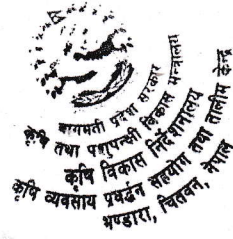 बागमती प्रदेश सरकार
कृषि तथा पशुपन्छी विकास मन्त्रालय
कृषि विकास निर्देशनालय
कृषि व्यवसाय प्रवर्द्धन सहयोग तथा तालीम केन्द्र
भण्डारा, चितवन, नेपाल